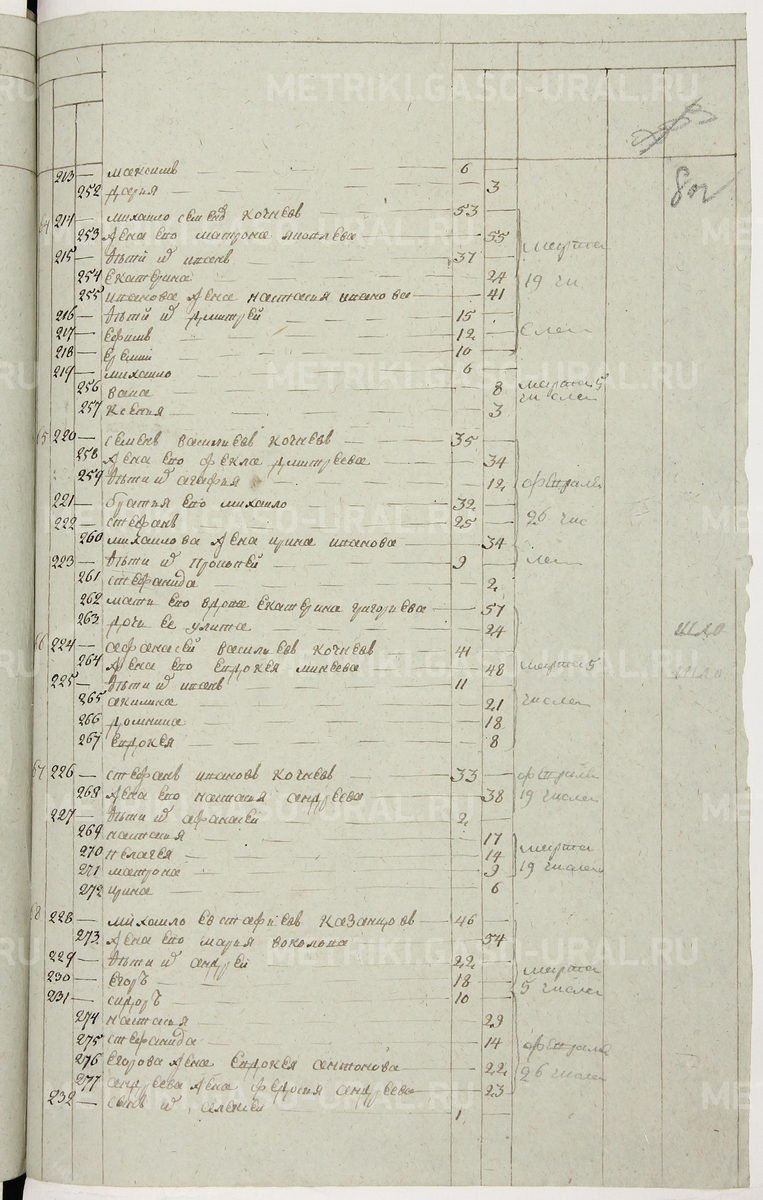 80
213 — максимъ — 6
252 дарья — 3
64 214 — михайло семенов кочневъ — 53
253 жена его матрона яковлева — 55
215 — дѣти их иванъ — 37
254 екатерина — 24
255 иванова жена настасия иванова — 41
216 — дѣти их дмитрей — 15
217 — ефимъ — 12
218 — еремий — 10
219 — михайло — 6
256 — 8
257 ксения — 3
марта 19 чи слеи
марта 5 числеи
65 220 — семенъ васильевъ кочневъ — 35
258 жена его фекла дмитрева — 34
259 дѣти их агафия — 12
221 — братия его михайло — 32
222 — стефанъ — 25
260 михайлова жена ирина иванова — 34
223 — дѣти их прокопей — 9
261 стефанида — 2
262 мати его вдова екатерина григориева — 57
263 дочи ее улита — 24
февраля 26 чис леи
66 224 — афанасей васильевъ кочневъ — 41
264 жена его евдокея минеева — 48
225 — дѣти их иванъ — 11
265 акилина — 21
266 домника — 18
267 евдокея — 8
марта 5 числеи
67 226 — стефанъ ивановъ кочневъ — 33
268 жена его настасия андреева — 38
227 — дѣти их афанасей — 2
269 настасия — 17
270 пелагея — 14
271 матрона — 9
272 ирина — 6
февраля 19 числеи
марта 19 числеи
68 228 — михайло евстафиевъ казанцовъ — 46
273 жена его марья — 54
229 — дѣти их андрей — 22
230 — егоръ — 18
231 — сидоръ — 10
274 настасия — 29
275 стефанида — 14
276 егорова жена евдокея антонова — 22
277 андреева жена федосия андреева — 23
232 — сынъ их алексей — 1
марта 5 числеи
февраля 26 числеи
METRIKI.GASO-URAL.RU